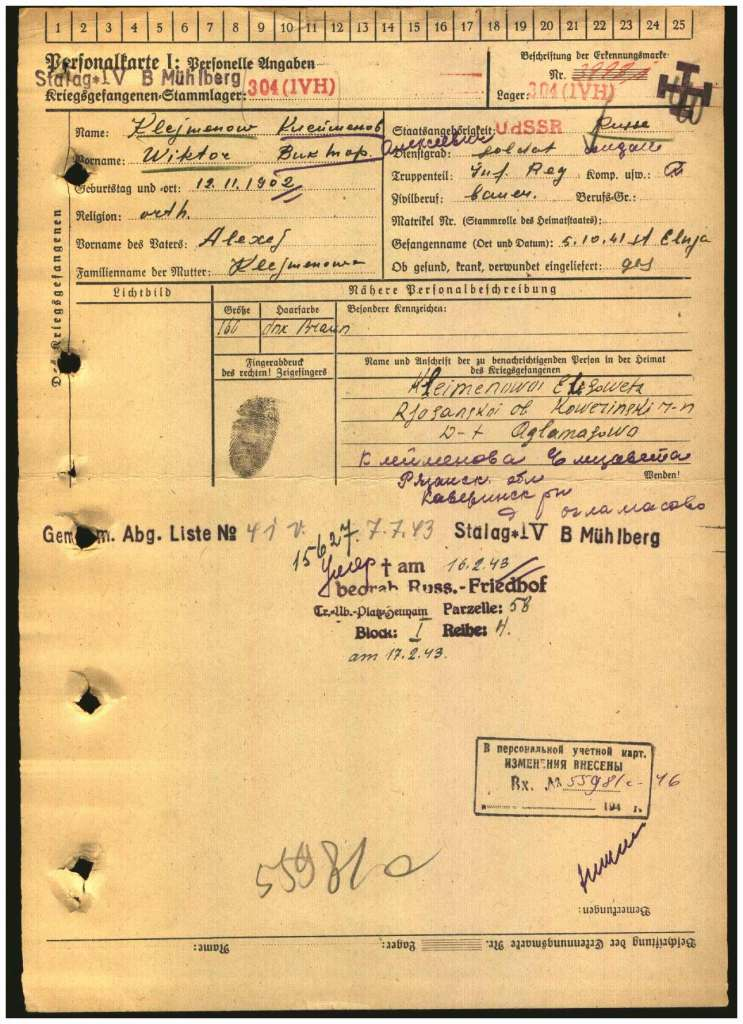 1 2 3 4 5 6 7 8 9 10 11 12 13 14 15 16 17 18 19 20 21 22 23 24 25
Personalkarte I: Personelle Angaben
Stalag IV B Mühlberg
Kriegsgefangenen-Stammlager: 304 (IVH)
Beschriftung der Erkennungsmarke
Nr.
Lager: 304 (IVH)
Des Kriegsgefangenen
Name: Klejmenow Клейменов
Vorname: Wiktor Виктор Алексеевич
Geburtstag und -ort: 12.11.1902
Religion: orth.
Vorname des Vaters: Alexej
Familienname der Mutter: Klejmenowa
Staatsangehörigkeit: UdSSR Russe
Dienstgrad: soldat солдат
Truppenteil: Inf. Reg Komp. usw.:
Zivilberuf: bauer. Berufs-Gr.:
Matrikel Nr. (Stammrolle des Heimatstaates):
Gefangenname (Ort und Datum): 5.10.41 st Elnja
Ob gesund, krank, verwundet eingeliefert: ges
Lichtbild
Nähere Personalbeschreibung
Größe Haarfarbe Besondere Kennzeichen:
160 Braun
Fingerabdruck
des rechten! Zeigefingers
Name und Anschrift der zu benachrichtigenden Person in der Heimat
des Kriegsgefangenen
Kleimenowa
Rjosanskoi ob Kowerinski r-n
D-
Клейменова Елизавета
Wenden!
Рязанск. обл
Каверинск рн
д огламасово
Gem. m. Abg. Liste No 41 v. 7.7.43 Stalag IV B Mühlberg
15627.
Умер † am 16.2.43
begrab. Russ.-Friedhof
Tr.-Üb.-Platz-Zeithain Parzelle: 58
Block: I Reihe: 4.
am 17.2.43.
В персональной учетной карт.
ИЗМЕНЕНИЯ ВНЕСЕНЫ
Вх. № 55981с-46
194 г.
55981с
Bemerkungen:
Beschriftung der Erkennungsmarke Nr. Lager: Name: